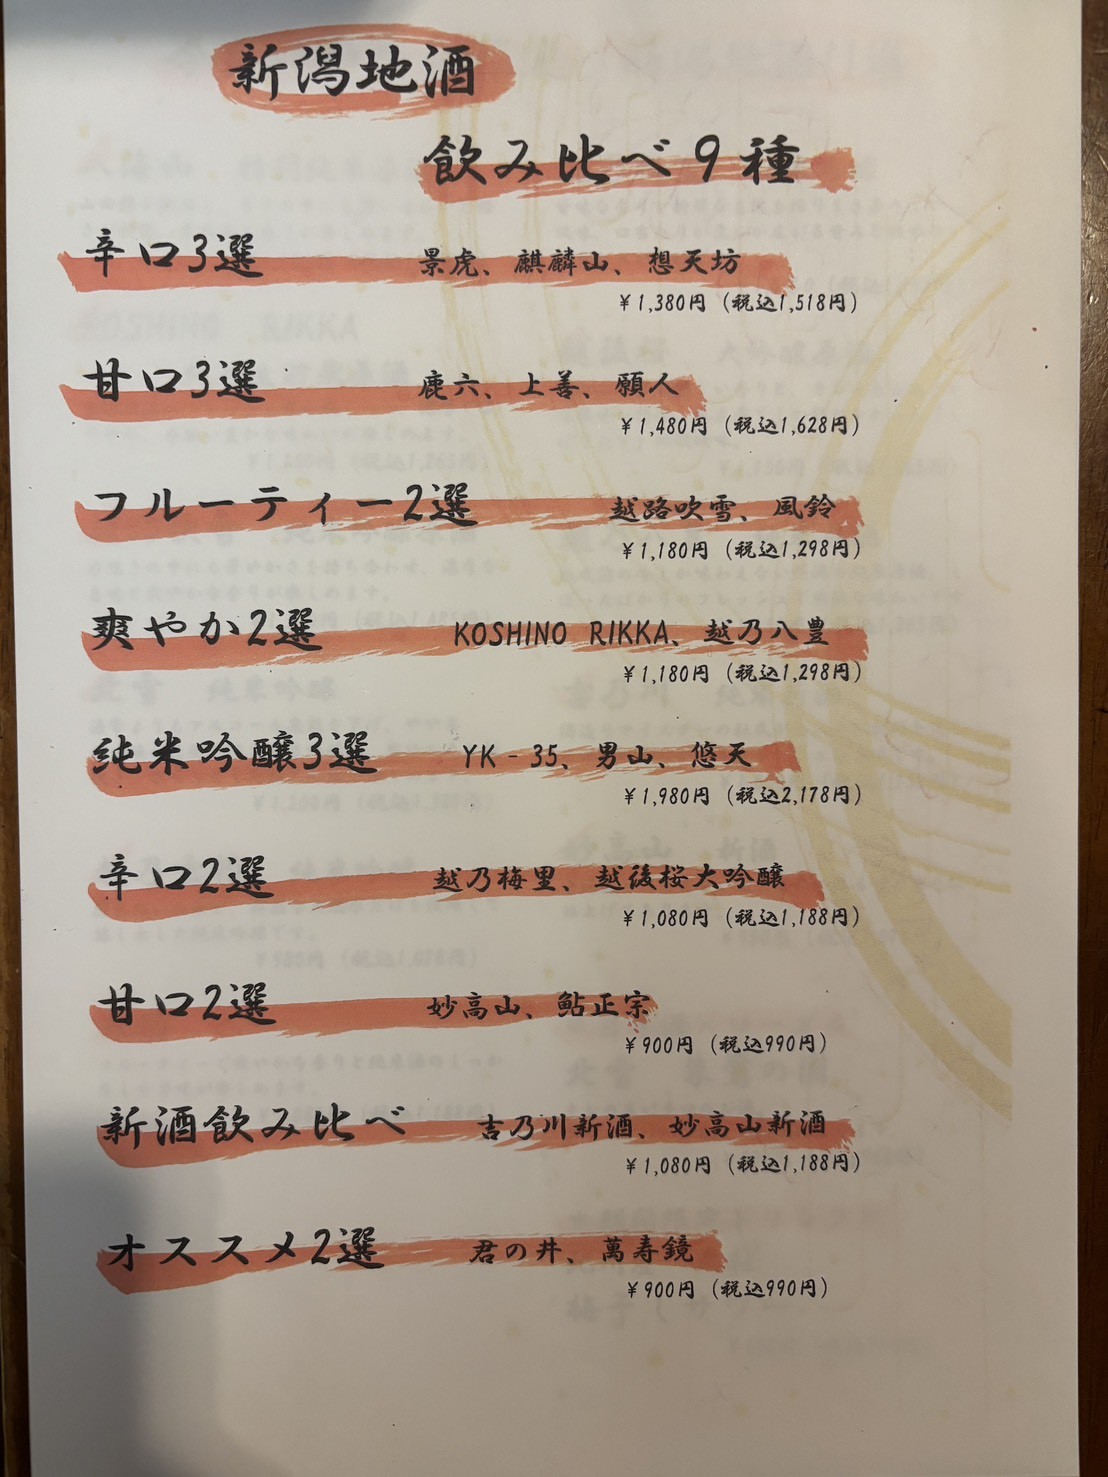 新潟地酒
飲み比べ9種
辛口3選 景虎、麒麟山、想天坊
¥1,380円（税込1,518円）
甘口3選 鹿六、上善、願人
¥1,480円（税込1,628円）
フルーティー2選 越路吹雪、風鈴
¥1,180円（税込1,298円）
爽やか2選 KOSHINO RIKKA、越乃八豊
¥1,180円（税込1,298円）
純米吟醸3選 YK-35、男山、悠天
¥1,980円（税込2,178円）
辛口2選 越乃梅里、越後桜大吟醸
¥1,080円（税込1,188円）
甘口2選 妙高山、鮎正宗
¥900円（税込990円）
新酒飲み比べ 吉乃川新酒、妙高山新酒
¥1,080円（税込1,188円）
オススメ2選 君の井、萬寿鏡
¥900円（税込990円）